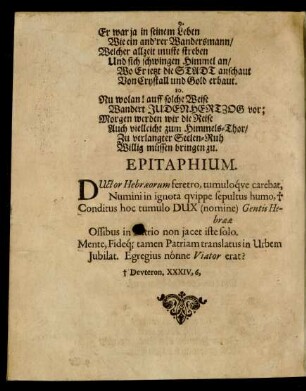 9.
Er war ja in seinem Leben
Wie ein and'rer Wandersmann/
Welcher allzeit muste streben
Und sich schwingen Himmel an/
Wo Er jetzt die STADT anschaut
Von Crystall und Gold erbaut.
10.
Nu wolan! auff solche Weise
Wandert JUDEN-HERTZOG vor;
Morgen werden wir die Reise
Auch vielleicht zum Himmels-Thor/
Zu verlangter Seelen-Ruh
Willig müssen bringen zu.
EPITAPHIUM.
DUctor Hebræorum feretro, tumuloqve carebat,
Numini in ignota qvippe sepultus humo, †
Conditus hoc tumulo DUX (nomine) Gentis He-
brææ
Ossibus in patrio non jacet iste solo.
Mente, Fideq; tamen Patriam translatus in Urbem
Jubilat. Egregius nónne Viator erat?
† Devteron. XXXIV, 6,